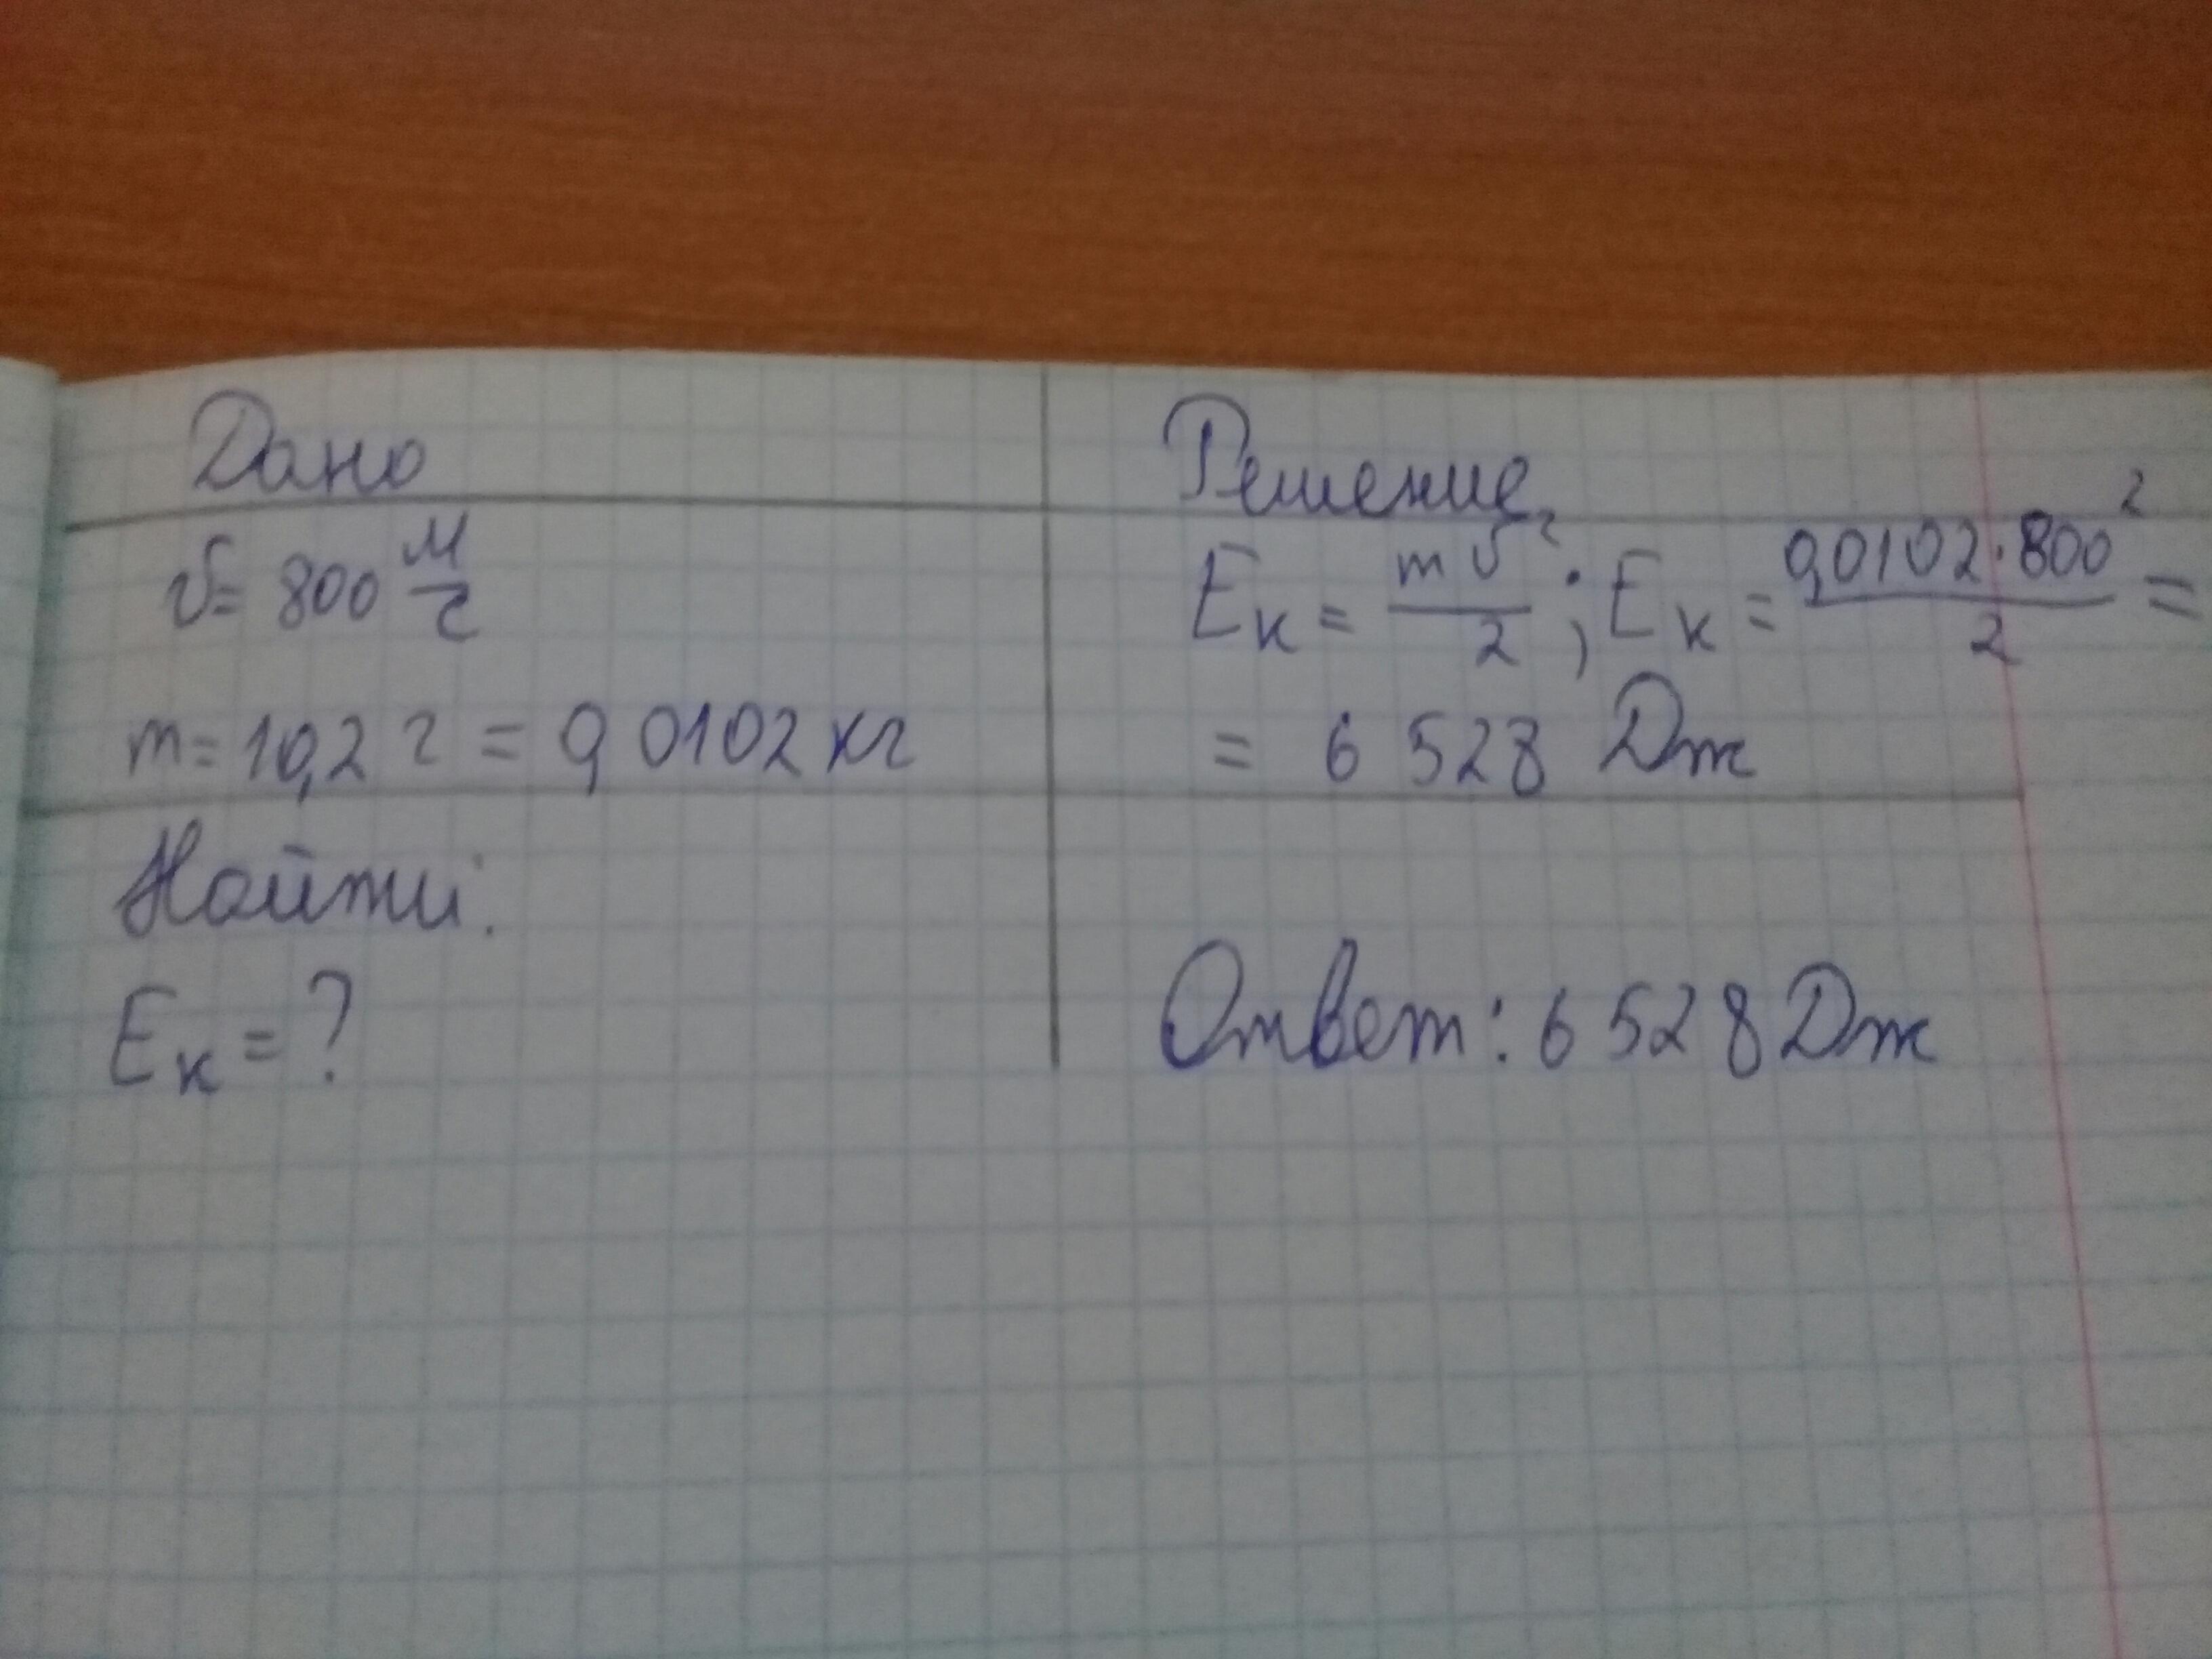 Дано
v = 800 м/с
m = 10,2 г = 0,0102 кг
Найти:
Eк = ?
Решение
Eк = mv²/2 ; Eк = 0,0102·800²/2 =
= 6 528 Дж
Ответ: 6 528 Дж